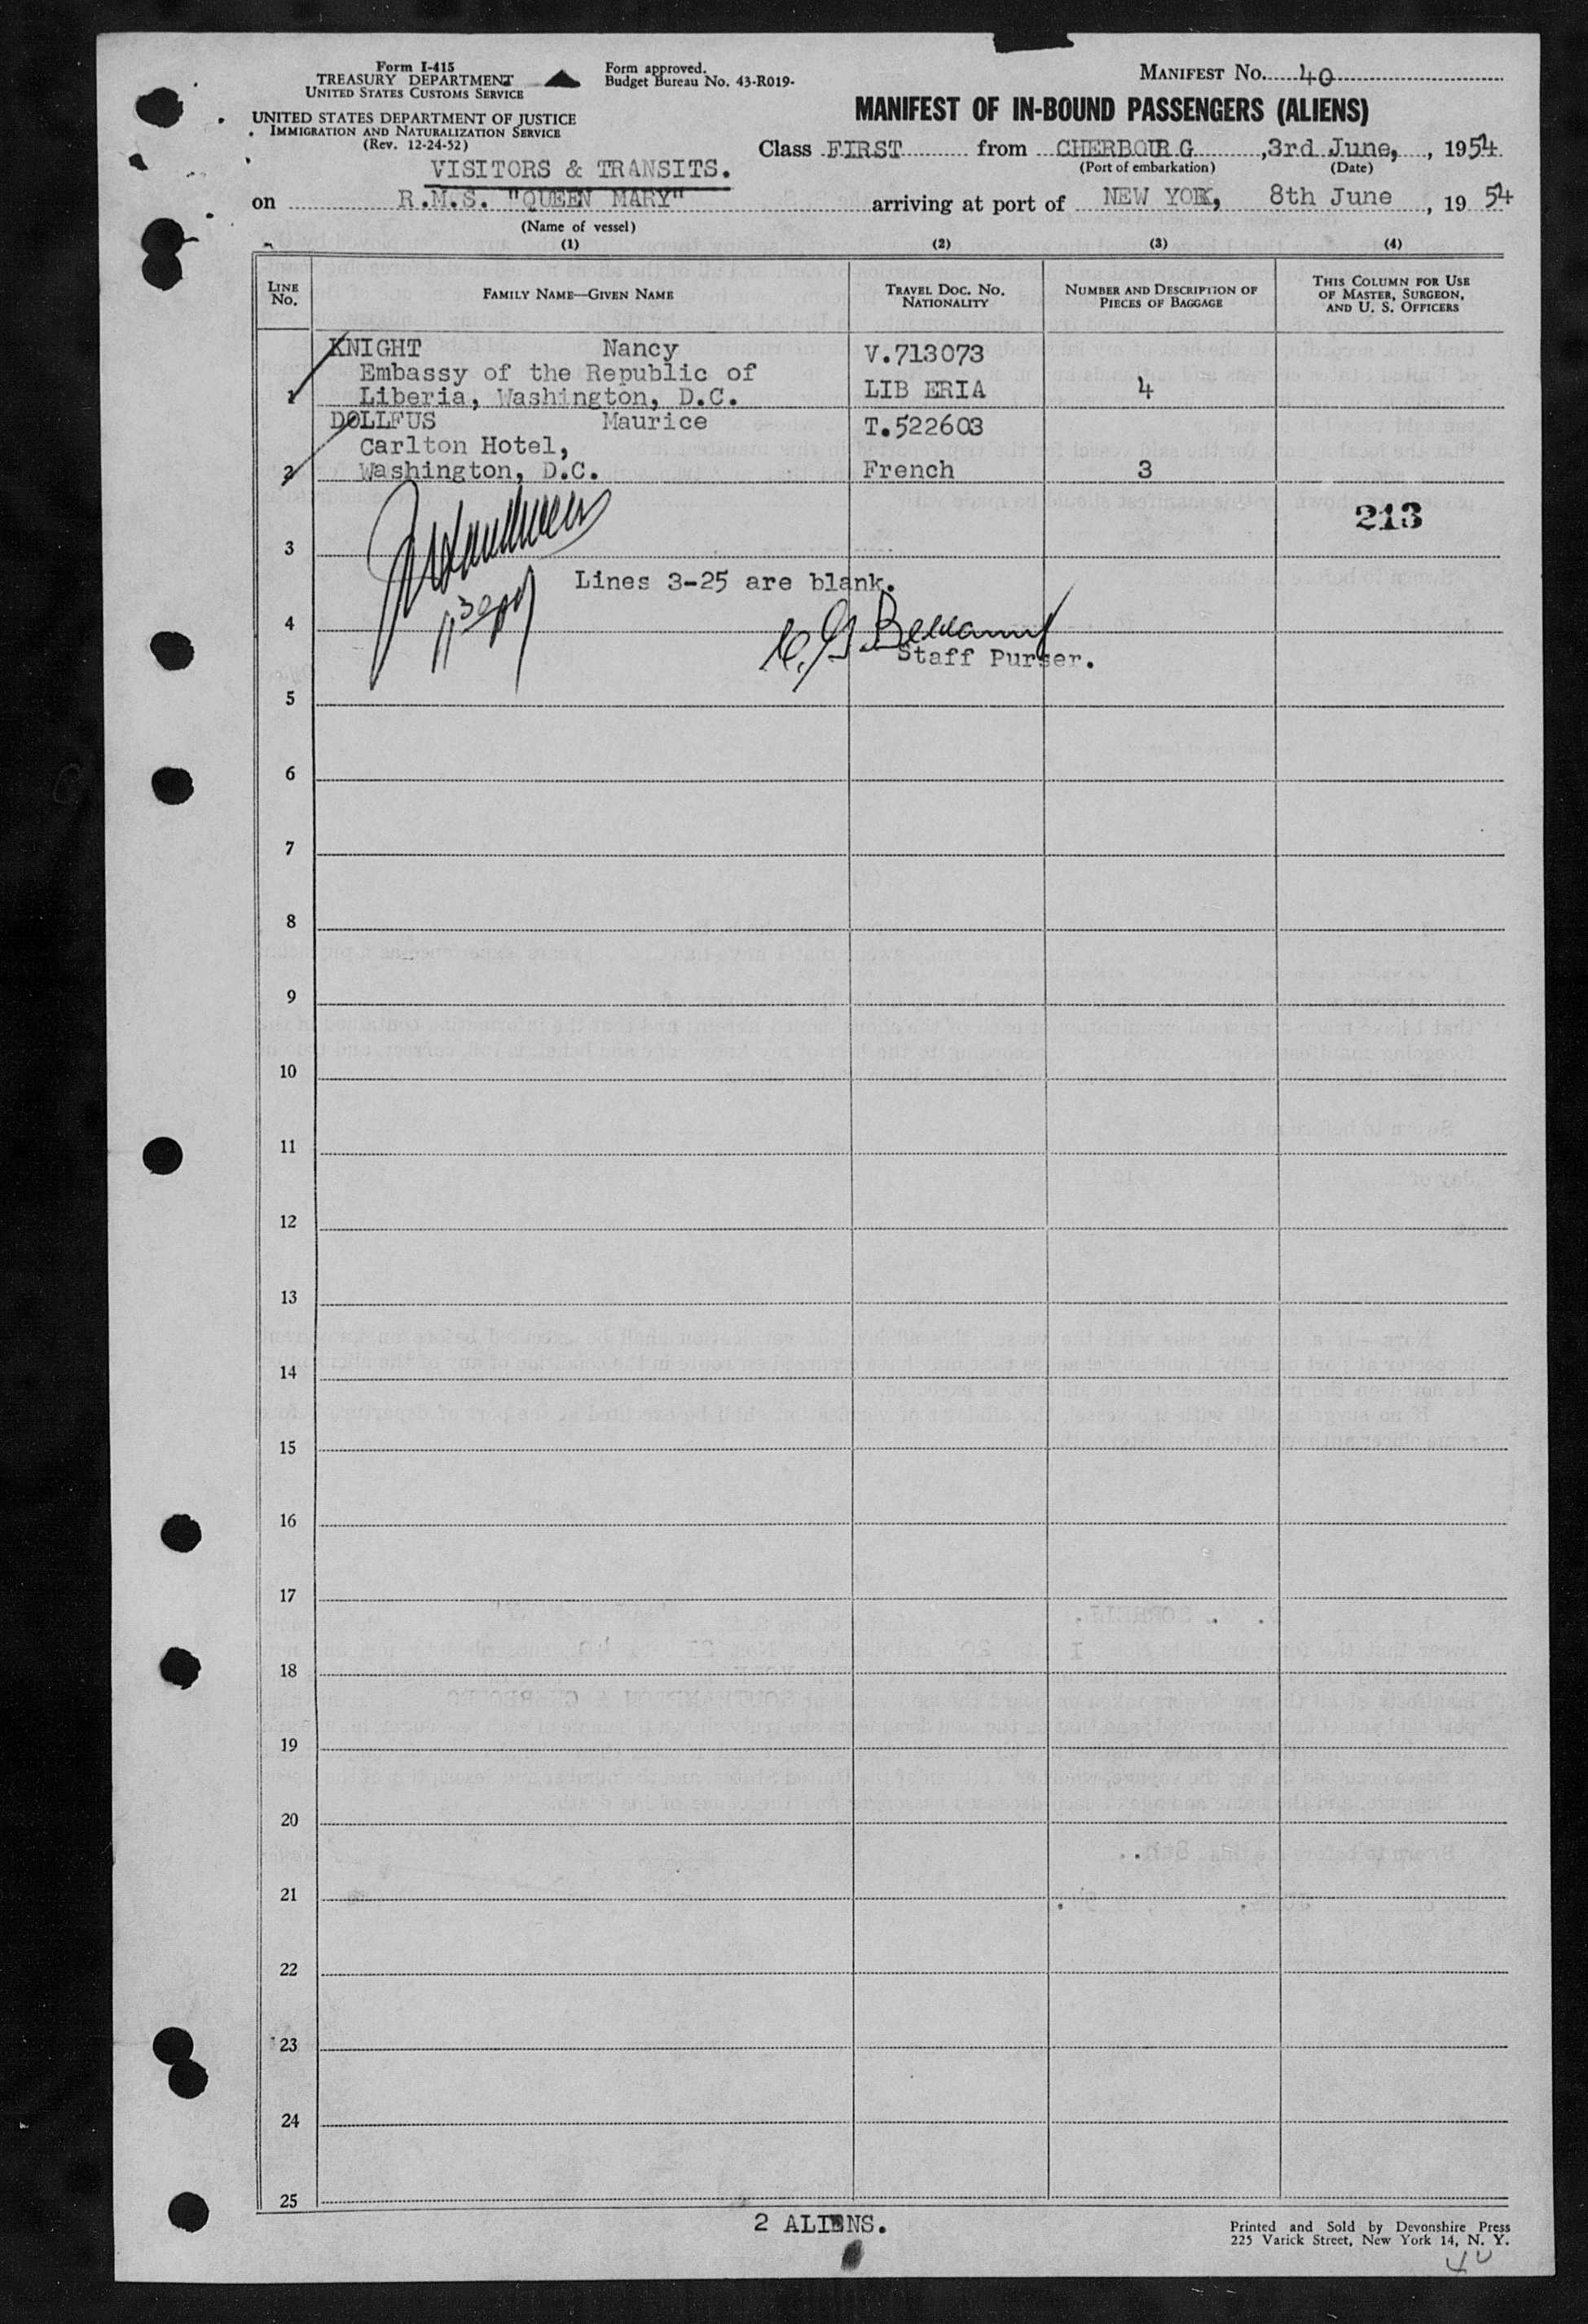 Form I-415
TREASURY DEPARTMENT
UNITED STATES CUSTOMS SERVICE
UNITED STATES DEPARTMENT OF JUSTICE
IMMIGRATION AND NATURALIZATION SERVICE
(Rev. 12-24-52)
Form approved.
Budget Bureau No. 43-R019-
MANIFEST No. 40
MANIFEST OF IN-BOUND PASSENGERS (ALIENS)
Class FIRST from CHERBOURG, 3rd June, , 1954
(Port of embarkation) (Date)
VISITORS & TRANSITS.
on R.M.S. "QUEEN MARY" arriving at port of NEW YORK, 8th June , 19 54
(Name of vessel)
(1) (2) (3) (4)
LINE No. FAMILY NAME—GIVEN NAME TRAVEL DOC. No. NATIONALITY NUMBER AND DESCRIPTION OF PIECES OF BAGGAGE THIS COLUMN FOR USE OF MASTER, SURGEON, AND U. S. OFFICERS
KNIGHT Nancy V.713073
Embassy of the Republic of
1 Liberia, Washington, D.C. LIB ERIA 4
DOLLFUS Maurice T.522603
Carlton Hotel,
2 Washington, D.C. French 3
213
3
Lines 3-25 are blank.
4
Staff Purser.
5
6
7
8
9
10
11
12
13
14
15
16
17
18
19
20
21
22
23
24
25
2 ALIENS.
Printed and Sold by Devonshire Press
225 Varick Street, New York 14, N. Y.
40